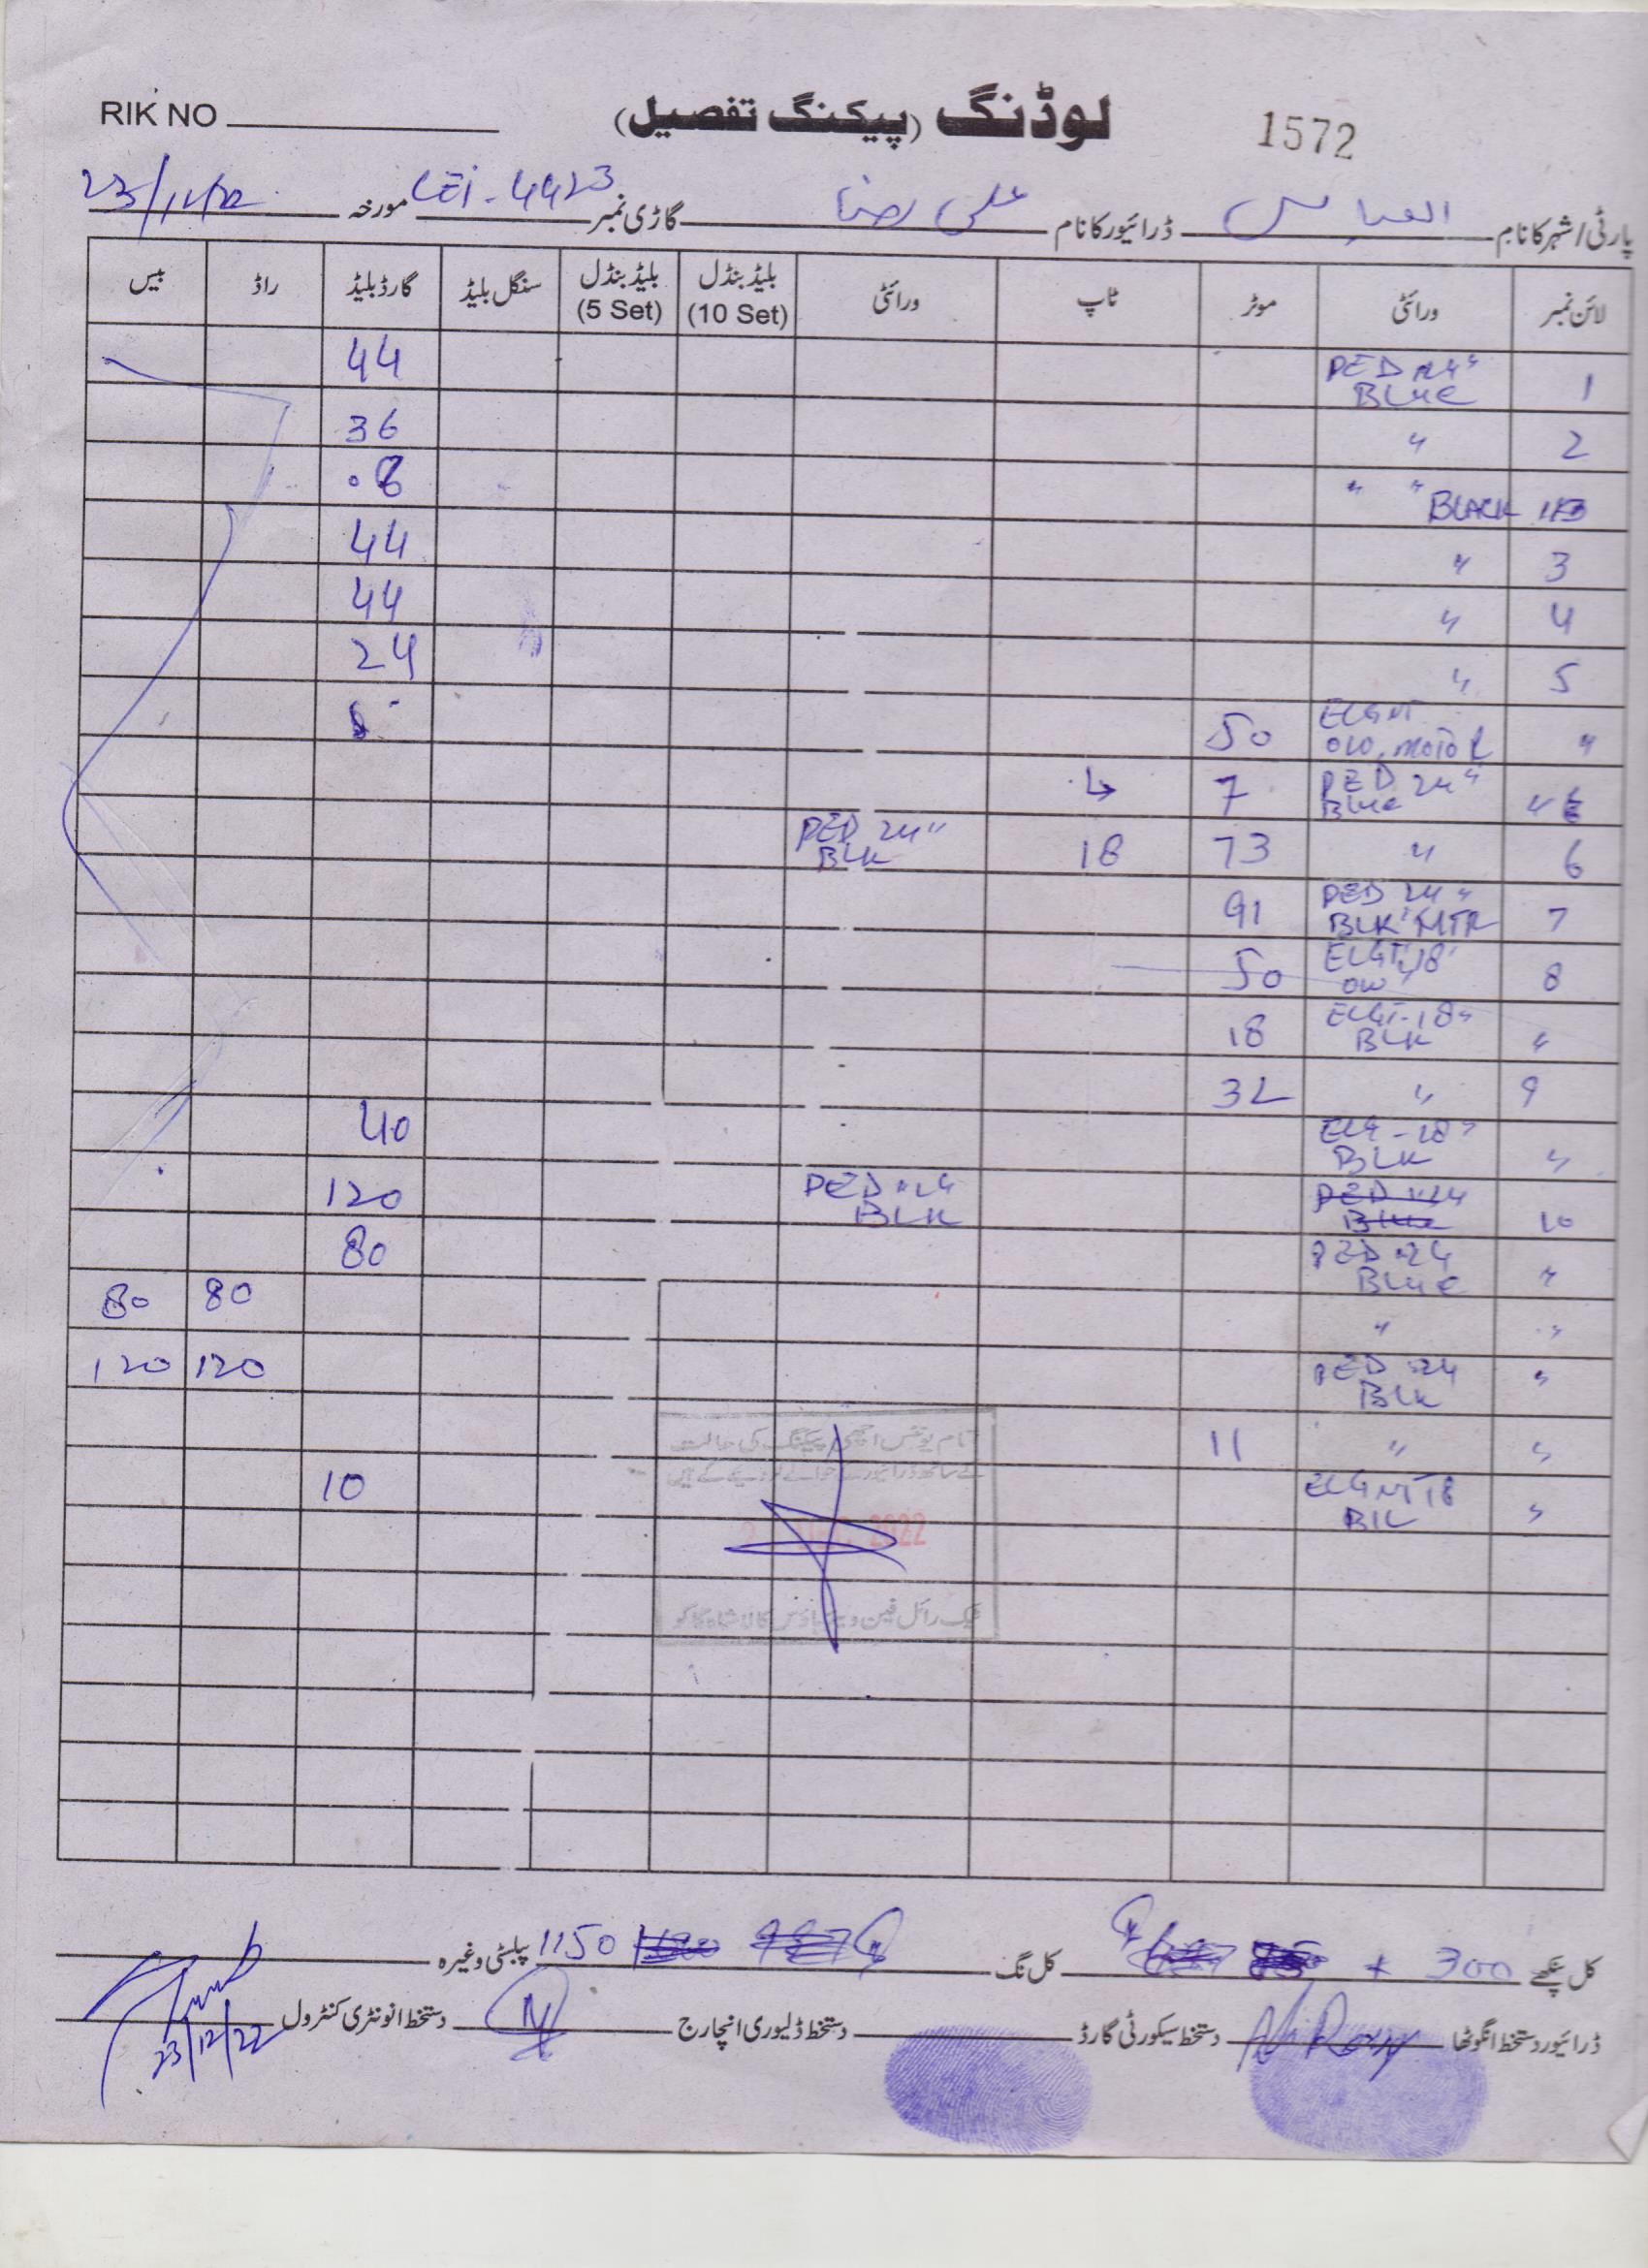 RIK NO
لوڈنگ (پیکنگ تفصیل)
1572
پارٹی/شہر کا نام العباس ڈرائیور کا نام علی رضا گاڑی نمبر LEi-4423 مورخہ 23/12/22
لائن نمبر ورائٹی موٹر ٹاپ ورائٹی بلیڈ بنڈل (10 Set) بلیڈ بنڈل (5 Set) سنگل بلیڈ گارڈ بلیڈ راڈ بیس
1 PED "24" BLUE 44
2 " 36
" " BLACK 8
3 " 44
4 " 44
5 " 24
" ELGNT OW. MOTOR 50
" 6 PED 24" BLUE 7
6 " 73 18 PED 24" BLK
7 PED 24" BLK MTR 91
8 ELGT 18" OW 50
" ELGT-18" BLK 18
9 " 32
" ELG-18" BLK 40
10 PED "24 BLUE PED "24 BLK 120
" PED "24 BLUE 80
" " 80 80
" PED "24 BLK 120 120
" " 11
" ELGNT 18 BLK 10
تمام یونٹس اچھی پیکنگ کی حالت
2022
کل پنکھے 300 کل نگ 1150 پبلسٹی وغیرہ
ڈرائیور دستخط انگوٹھا Ali Raza دستخط سیکورٹی گارڈ دستخط ڈلیوری انچارج دستخط انونٹری کنٹرول
23/12/22